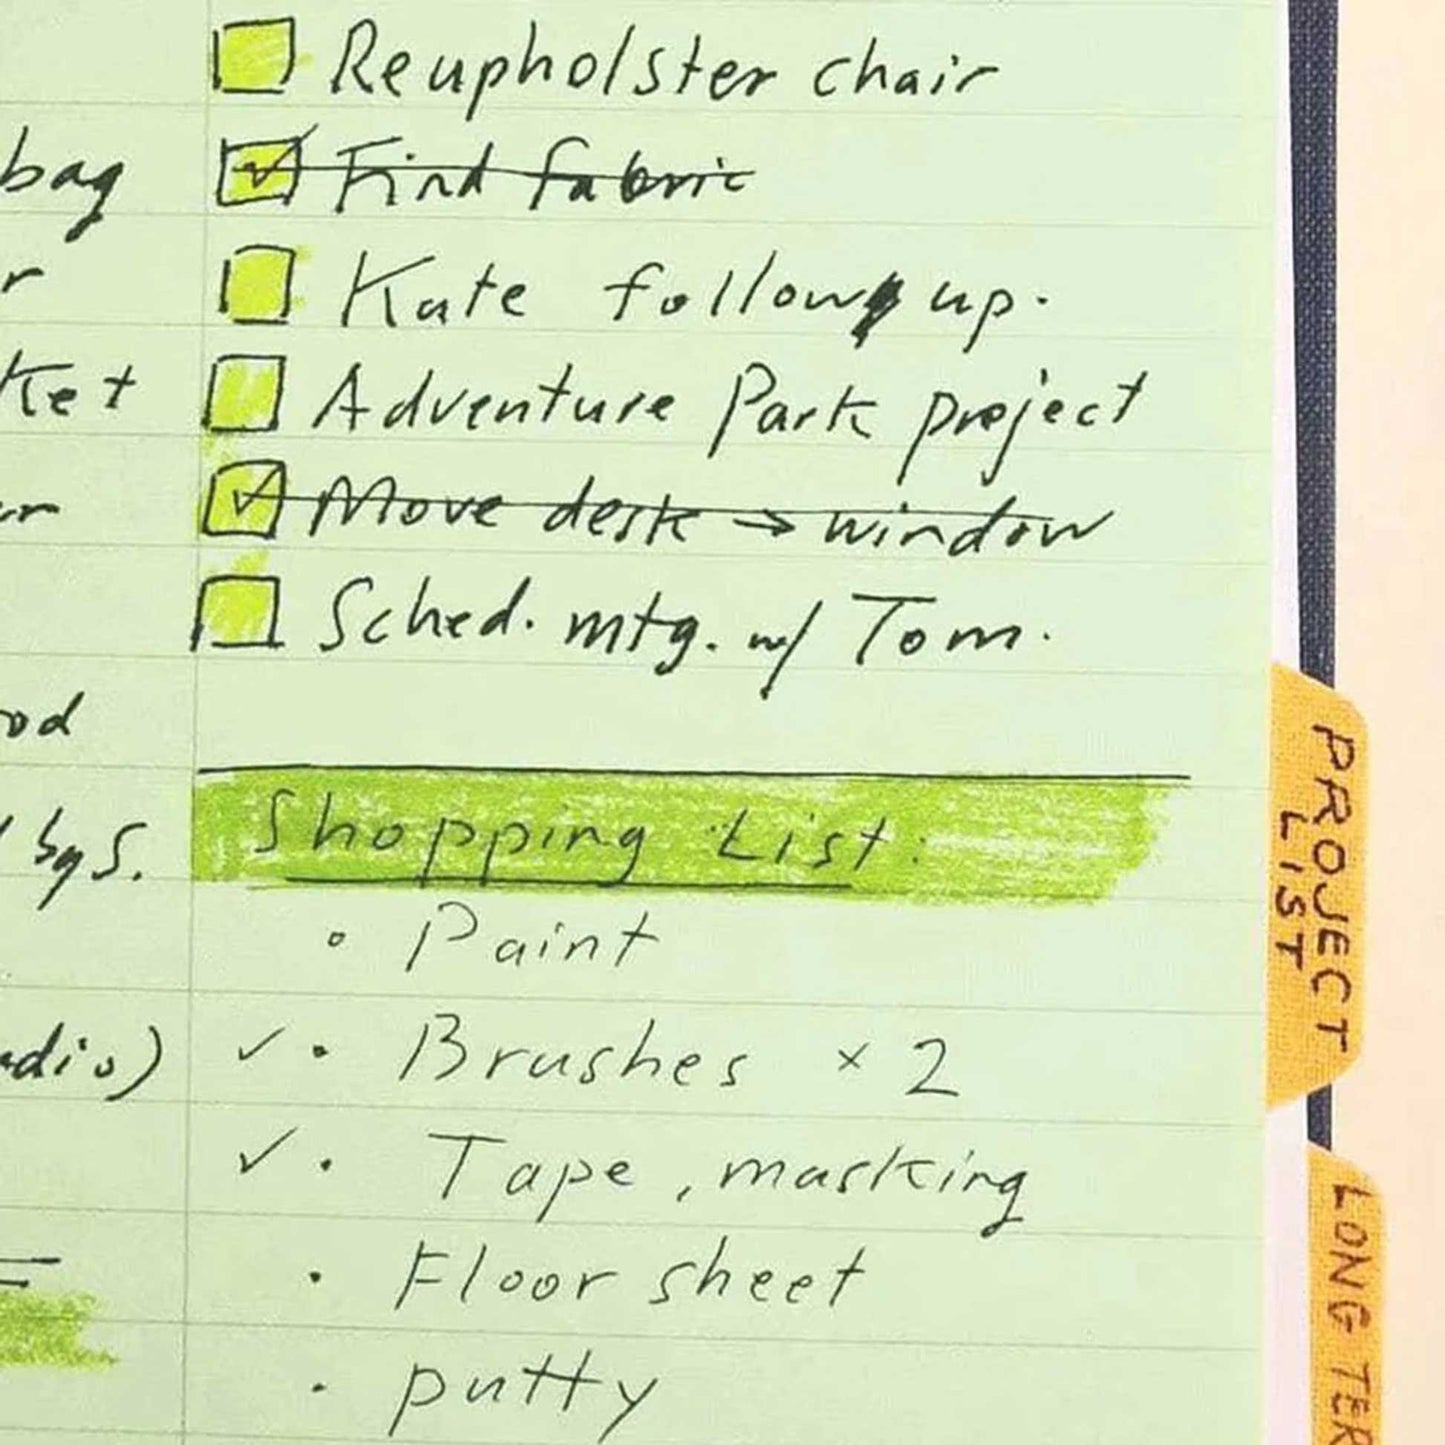 Reupholster chair
bag
Find fabric
r
Kate follow up.
ket
Adventure Park project
Move desk → window
Sched. mtg. w/ Tom.
od
Shopping List:
by S.
• Paint
✓ • Brushes × 2
✓ • Tape, masking
• Floor sheet
• putty
PROJECT
LIST
LONG TER